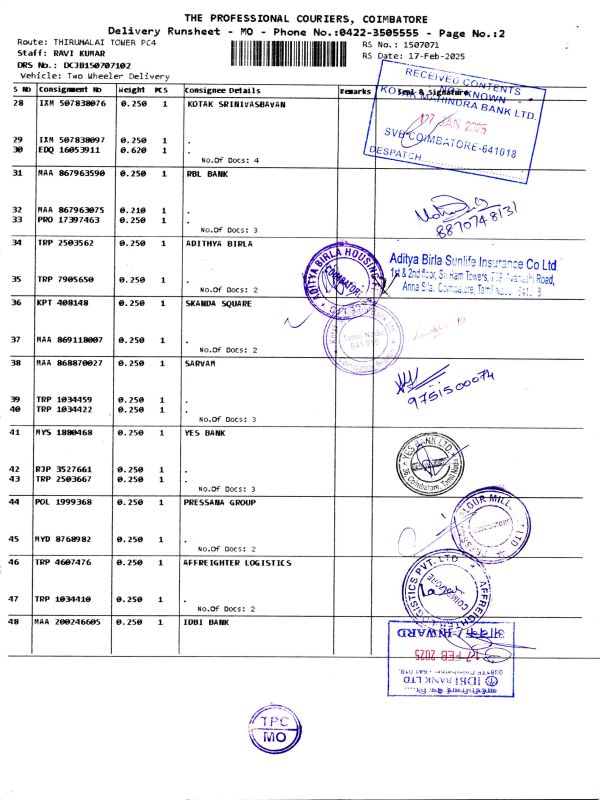 THE PROFESSIONAL COURIERS, COIMBATORE
Delivery Runsheet - MO - Phone No.:0422-3505555 - Page No.:2
Route: THIRUMALAI TOWER PC4
RS No.: 1507071
Staff: RAVI KUMAR
RS Date: 17-Feb-2025
DRS No.: DCJB150707102
Vehicle: Two Wheeler Delivery
S No Consignment No Weight PCS Consignee Details Remarks Seal & Signature
28 IXM 507838076 0.250 1 KOTAK SRINIVASBAVAN
RECEIVED CONTENTS
NOT KNOWN
KOTAK MAHINDRA BANK LTD.
SVB-COIMBATORE-641018
DESPATCH
29 IXM 507838097 0.250 1 .
30 EDQ 16053911 0.620 1 .
No.Of Docs: 4
31 MAA 867963590 0.250 1 RBL BANK
32 MAA 867963075 0.210 1 .
33 PRO 17397463 0.250 1 .
No.Of Docs: 3
8870748131
34 TRP 2503562 0.250 1 ADITHYA BIRLA
ADITYA BIRLA HOUSING
COIMBATORE
Aditya Birla Sunlife Insurance Co Ltd
1st & 2nd floor, Sri Ram Towers,
Road,
Anna Silai, Coimbatore, Tamil Nadu
35 TRP 7905650 0.250 1 .
No.Of Docs: 2
36 KPT 408148 0.250 1 SKANDA SQUARE
Tamil Nadu
37 MAA 869118007 0.250 1 .
No.Of Docs: 2
38 MAA 868870027 0.250 1 SARVAM
9751500074
39 TRP 1034459 0.250 1 .
40 TRP 1034422 0.250 1 .
No.Of Docs: 3
41 MYS 1880468 0.250 1 YES BANK
YES BANK LTD
Coimbatore, Tamil Nadu
42 RJP 3527661 0.250 1 .
43 TRP 2503667 0.250 1 .
No.Of Docs: 3
44 POL 1999368 0.250 1 PRESSANA GROUP
FLOUR MILL
COIMBATORE
45 MYD 8768982 0.250 1 .
No.Of Docs: 2
46 TRP 4607476 0.250 1 AFFREIGHTER LOGISTICS
AFFREIGHTER LOGISTICS PVT. LTD
COIMBATORE
47 TRP 1034410 0.250 1 .
No.Of Docs: 2
48 MAA 200246605 0.250 1 IDBI BANK
आवक / INWARD
17 FEB 2025
IDBI BANK LTD
TPC
MO